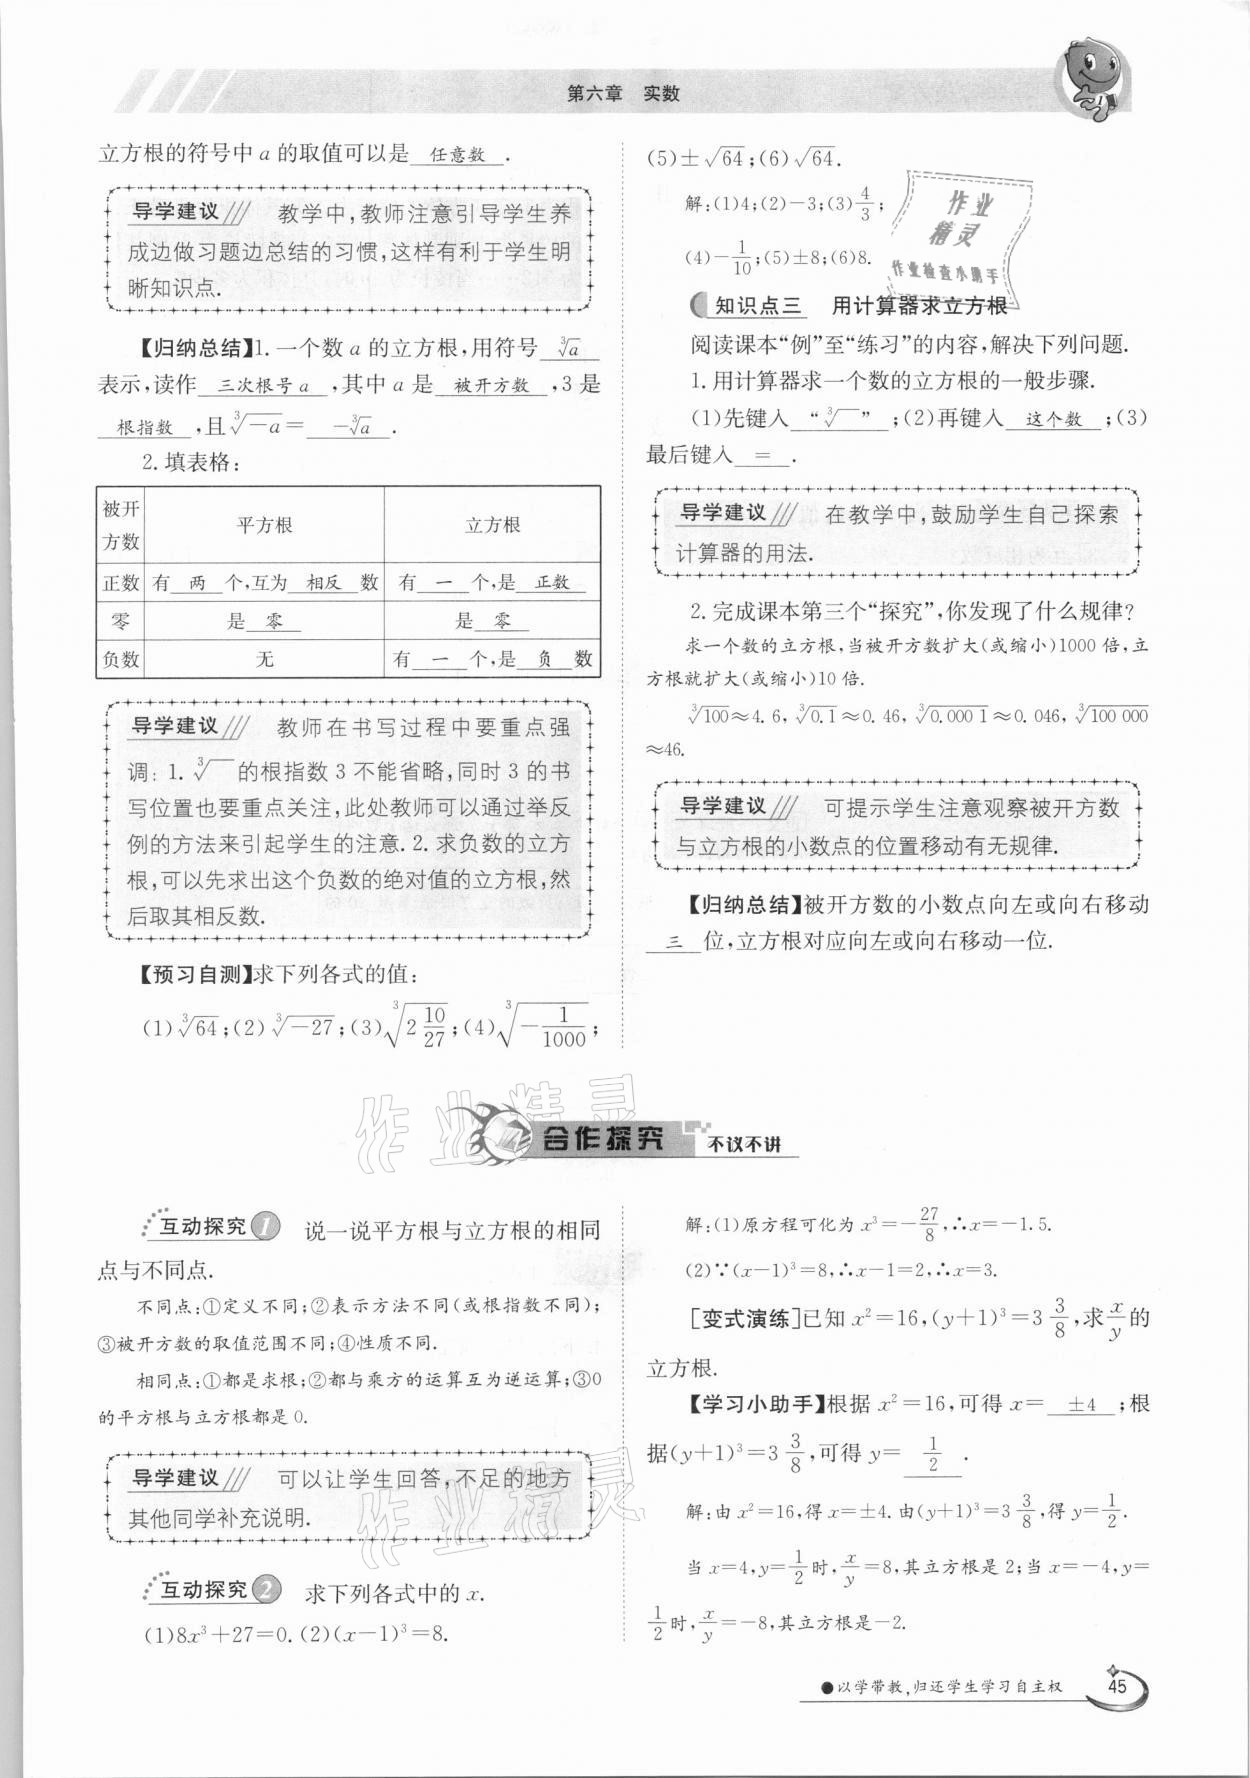 第六章 实数
立方根的符号中 a 的取值可以是 任意数 .
导学建议/// 教学中,教师注意引导学生养
成边做习题边总结的习惯,这样有利于学生明
晰知识点.
【归纳总结】1. 一个数 a 的立方根,用符号 ∛a
表示,读作 三次根号 a ,其中 a 是 被开方数 ,3 是
根指数 ,且∛-a= -∛a .
2. 填表格:
被开方数 平方根 立方根
正数 有 两 个,互为 相反 数 有 一 个,是 正数
零 是 零 是 零
负数 无 有 一 个,是 负 数
导学建议/// 教师在书写过程中要重点强
调: 1. ∛ 的根指数 3 不能省略,同时 3 的书
写位置也要重点关注,此处教师可以通过举反
例的方法来引起学生的注意. 2. 求负数的立方
根,可以先求出这个负数的绝对值的立方根,然
后取其相反数.
【预习自测】求下列各式的值:
(1)∛64;(2)∛-27;(3)∛(2 10/27);(4)∛(-1/1000);
(5)±√64;(6)√64.
解:(1)4;(2)-3;(3)4/3;
(4)-1/10;(5)±8;(6)8.
作业
精灵
作业检查小助手
知识点三 用计算器求立方根
阅读课本“例”至“练习”的内容,解决下列问题.
1. 用计算器求一个数的立方根的一般步骤.
(1)先键入 “∛ ” ;(2)再键入 这个数 ;(3)
最后键入 = .
导学建议/// 在教学中,鼓励学生自己探索
计算器的用法.
2. 完成课本第三个“探究”,你发现了什么规律?
求一个数的立方根,当被开方数扩大(或缩小)1000 倍,立
方根就扩大(或缩小)10 倍.
∛100≈4. 6,∛0.1≈0. 46,∛0.000 1≈0. 046,∛100 000
≈46.
导学建议/// 可提示学生注意观察被开方数
与立方根的小数点的位置移动有无规律.
【归纳总结】被开方数的小数点向左或向右移动
三 位,立方根对应向左或向右移动一位.
作业精灵
合作探究 不议不讲
互动探究 1 说一说平方根与立方根的相同
点与不同点.
不同点:①定义不同;②表示方法不同(或根指数不同);
③被开方数的取值范围不同;④性质不同.
相同点:①都是求根;②都与乘方的运算互为逆运算;③0
的平方根与立方根都是 0.
导学建议/// 可以让学生回答,不足的地方
其他同学补充说明.
作业精灵
互动探究 2 求下列各式中的 x.
(1)8x³+27=0. (2)(x-1)³=8.
解:(1)原方程可化为 x³=-27/8,∴x=-1. 5.
(2)∵(x-1)³=8,∴x-1=2,∴x=3.
[变式演练]已知 x²=16,(y+1)³=3 3/8,求x/y的
立方根.
【学习小助手】根据 x²=16,可得 x= ±4 ;根
据(y+1)³=3 3/8,可得 y= 1/2 .
解:由 x²=16,得 x=±4. 由(y+1)³=3 3/8,得 y=1/2.
当 x=4,y=1/2时,x/y=8,其立方根是 2;当 x=-4,y=
1/2时,x/y=-8,其立方根是-2.
●以学带教,归还学生学习自主权 45